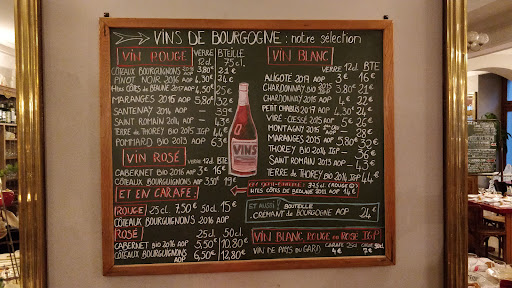 VINS DE BOURGOGNE : notre sélection
VIN ROUGE VERRE 12cl BTEILLE 75cl.
CÔTEAUX BOURGUIGNONS AOP 3,80€ 21€
PINOT NOIR 2016 AOP 4,30€ 24€
Htes CÔTES DE BEAUNE 2017 AOP 4,50€ 25€
MARANGES 2016 AOP 5,80€ 32€
SANTENAY 2014 AOP 39€
SAINT ROMAIN 2014 AOP 43€
TERRE DE THOREY BIO 2015 IGP 44€
POMMARD BIO AOP 63€
VIN ROSÉ VERRE 12cl BTE
CABERNET BIO 2016 AOP 16€
CÔTEAUX BOURGUIGNONS AOP 3,50€ 19€
ET EN CARAFE !
ROUGE 25cl. 7,50€ 50cl 15€
CÔTEAUX BOURGUIGNONS AOP
ROSÉ 25cl 50cl
CABERNET BIO 2016 AOP 5,50€ 10,80€
CÔTEAUX BOURGUIGNONS AOP 6,50€ 12,80€
VINS
VIN BLANC
VERRE 12cl BTE
ALIGOTÉ 2017 AOP 3€ 16€
CHARDONNAY BIO AOP 3,80€ 21€
CHARDONNAY 2015 AOP 4€ 22€
PETIT CHABLIS 2017 AOP 4,30€ 24€
VIRÉ-CLESSÉ 2015 AOP 5€
MONTAGNY 2015 AOP
MARANGES 2015 AOP 5,80€ 32€
THOREY BIO 2014 IGP 36€
SAINT ROMAIN 2013 AOP 43€
TERRE DE THOREY BIO IGP 44€
37,5cl (ROUGE)
Htes CÔTES DE BEAUNE 2015 AOP 14€
ET AUSSI BOUTEILLE
CRÉMANT DE BOURGOGNE AOP 24€
VIN BLANC, ROUGE ou ROSÉ IGP
VIN DE PAYS DU GARD CARAFE 25cl 4€ 50cl 7€